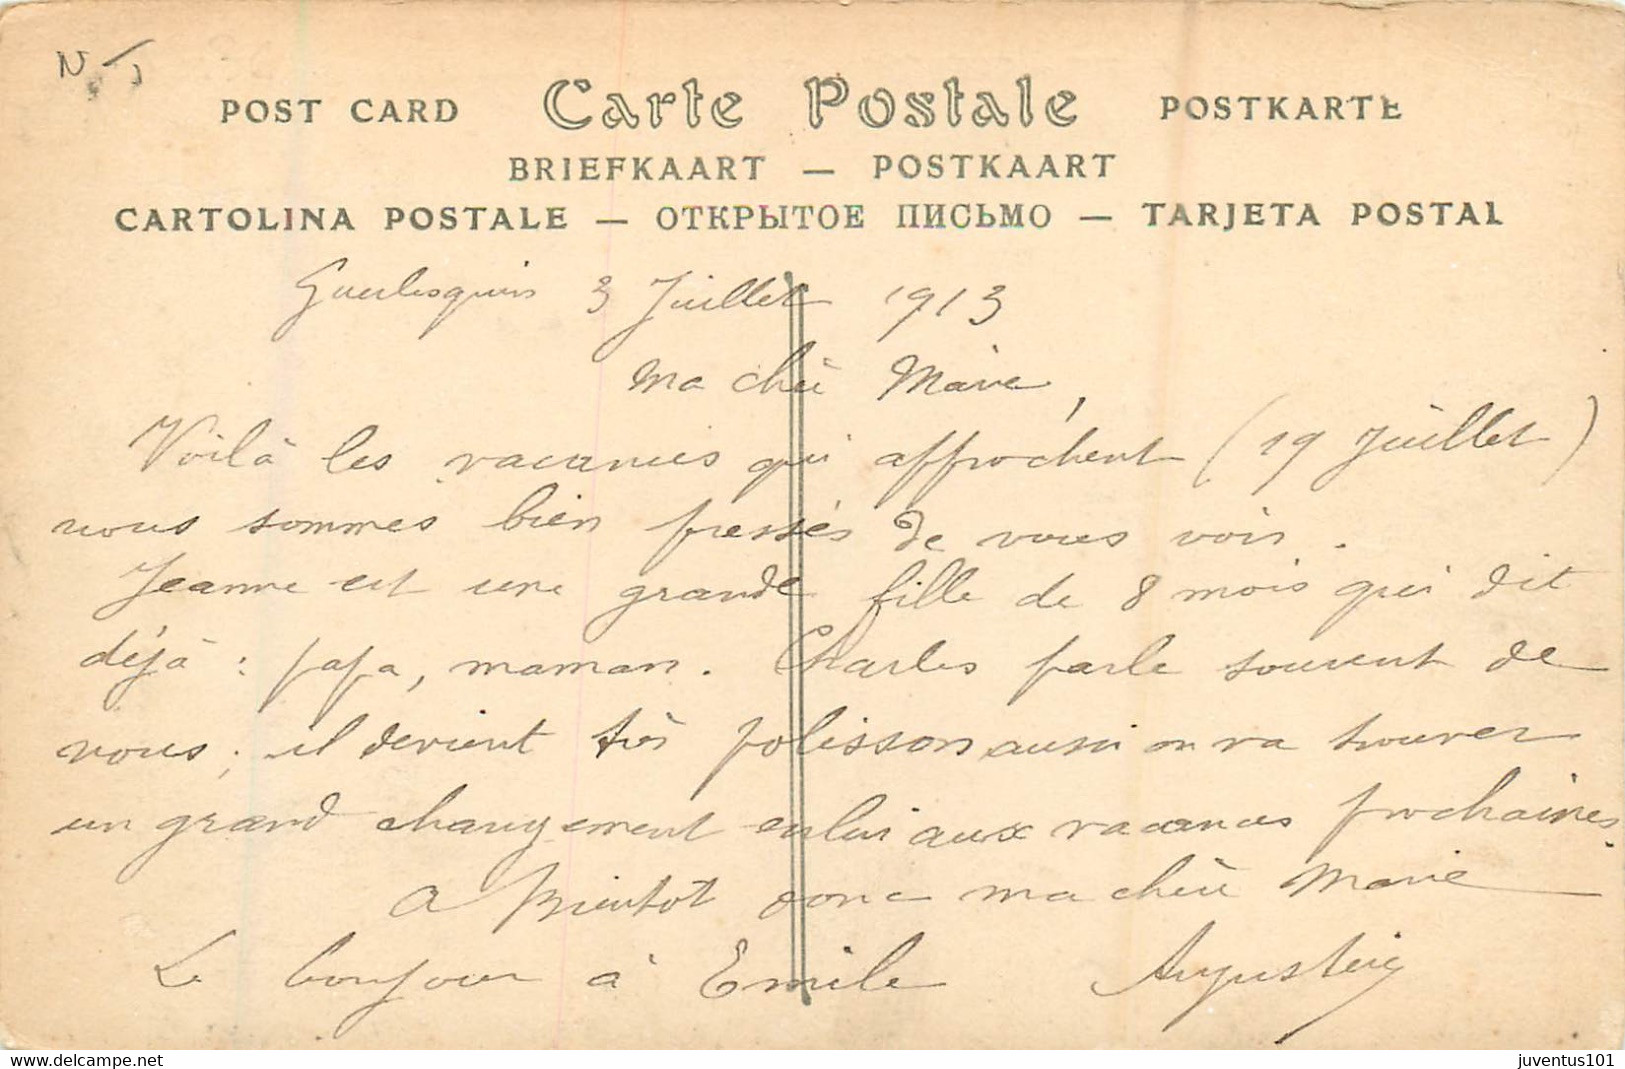 POST CARD Carte Postale POSTKARTE
BRIEFKAART — POSTKAART
CARTOLINA POSTALE — ОТКРЫТОЕ ПИСЬМО — TARJETA POSTAL
Guerlesquin 3 Juillet 1913
Ma chère Marie,
Voilà les vacances qui approchent (19 Juillet)
nous sommes bien pressés de vous voir.
Jeanne est une grande fille de 8 mois qui dit
déjà : papa, maman. Charles parle souvent de
vous ; il devient très polisson aussi on va trouver
un grand changement en lui aux vacances prochaines
A Bientôt donc ma chère Marie
Le bonjour à Emile Augustine
delcampe.net
juventus101